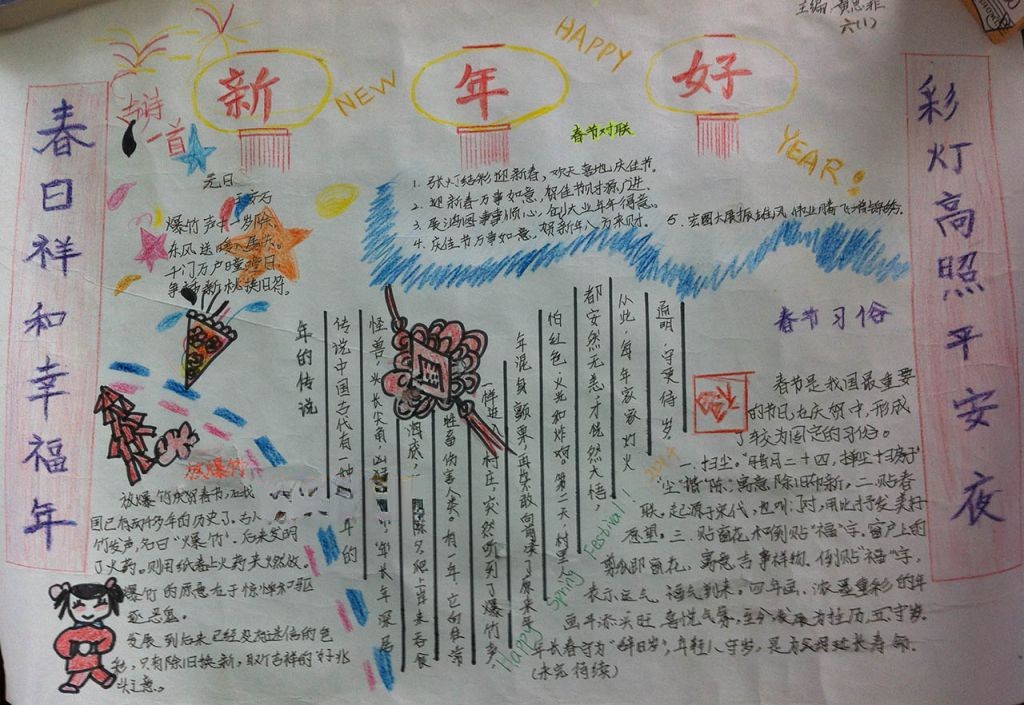 主编:黄思菲
六(1)
新年好
HAPPY
NEW
YEAR!
春日祥和幸福年
彩灯高照平安夜
古诗
一首
元日
王安石
爆竹声中一岁除
东风送暖入屠苏。
千门万户曈曈日
争 新桃换旧符。
春节对联
1. 张灯结彩迎新春,欢天喜地庆佳节。
2. 迎新春万事如意,贺佳节财源广进.
3. 展鸿图事事顺心,创大业年年得意。
4. 庆佳节万事如意,贺新年八方来财.
5. 宏图大展 雄风 伟业腾飞
年的传说
传说中国古代有一种 年的
怪兽,头长尖角,凶 年长年深居
海底, 除夕 爬上岸来吞食
牲畜伤害人类。有一年,它向往常
一样进入村庄,突然听到了爆竹声
年浑身颤栗,再不敢向前凑了原来年
怕红色、火光和炸响。第二天,村里
都安然无恙才恍然大悟,
从此,每年家家灯火
通明,守更待岁。
Happy Spring Festival!
福
春节习俗
春节是我国最重要
的节日,在庆贺中,形成
了较为固定的习俗。
一、扫尘。"腊月二十四,掸尘扫房子"
"尘"惜"陈",寓意除旧布新。二、贴春
联。起源于宋代, 用此抒发美好
愿望。三、贴窗花,和倒贴"福"字。窗户上的
剪纸即窗花,寓意吉事祥物.倒贴"福"字,
表示运气、福气到来。四年画,浓墨重彩的年
画平添 喜悦气氛, 五、守岁.
年长者守为"辞旧岁";年轻人守岁,是为父母延长寿命.
(未完待续)
放爆竹
放爆竹庆贺春节,在我
国已有 多年的历史了。古人
竹发声,名曰"爆竹"。后来发明
了火药。则用纸卷火药来燃放。
爆竹的原意在于惊惮和驱
逐恶鬼。
发展到后来已经没有迷信的色
彩,只有除旧换新,取个吉祥的"好兆
头"之意。